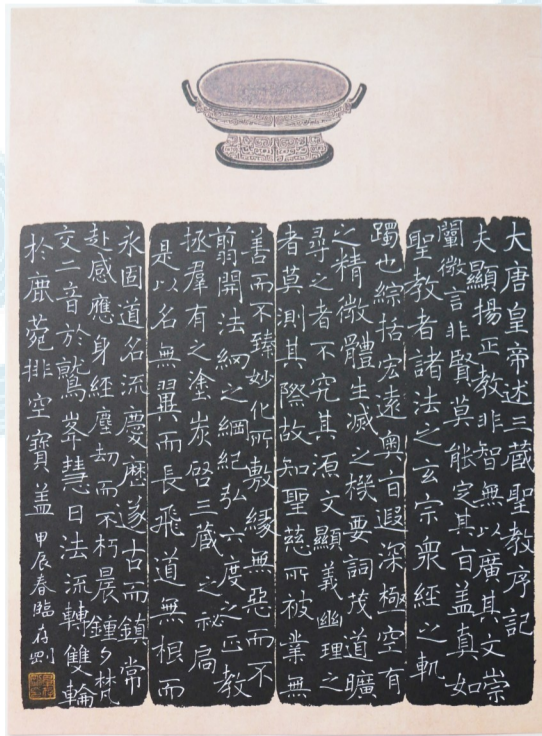 大唐皇帝述三藏聖教序記
夫顯揚正教非智無以廣其文崇
闡微言非賢莫能定其旨盖真如
聖教者諸法之玄宗衆經之軌
躅也綜括宏遠奧旨遐深極空有
之精微體生滅之機要詞茂道曠
尋之者不究其源文顯義幽理之
者莫測其際故知聖慈所被業無
善而不臻妙化所敷緣無惡而不
翦開法網之綱紀弘六度之正教
拯羣有之塗炭啓三藏之祕扃
是以名無翼而長飛道無根而
永固道名流慶歷遂古而鎮常
赴感應身經塵劫而不朽晨鍾夕梵
交二音於鷲峯慧日法流轉雙輪
於鹿菀排空寶盖 甲辰春臨